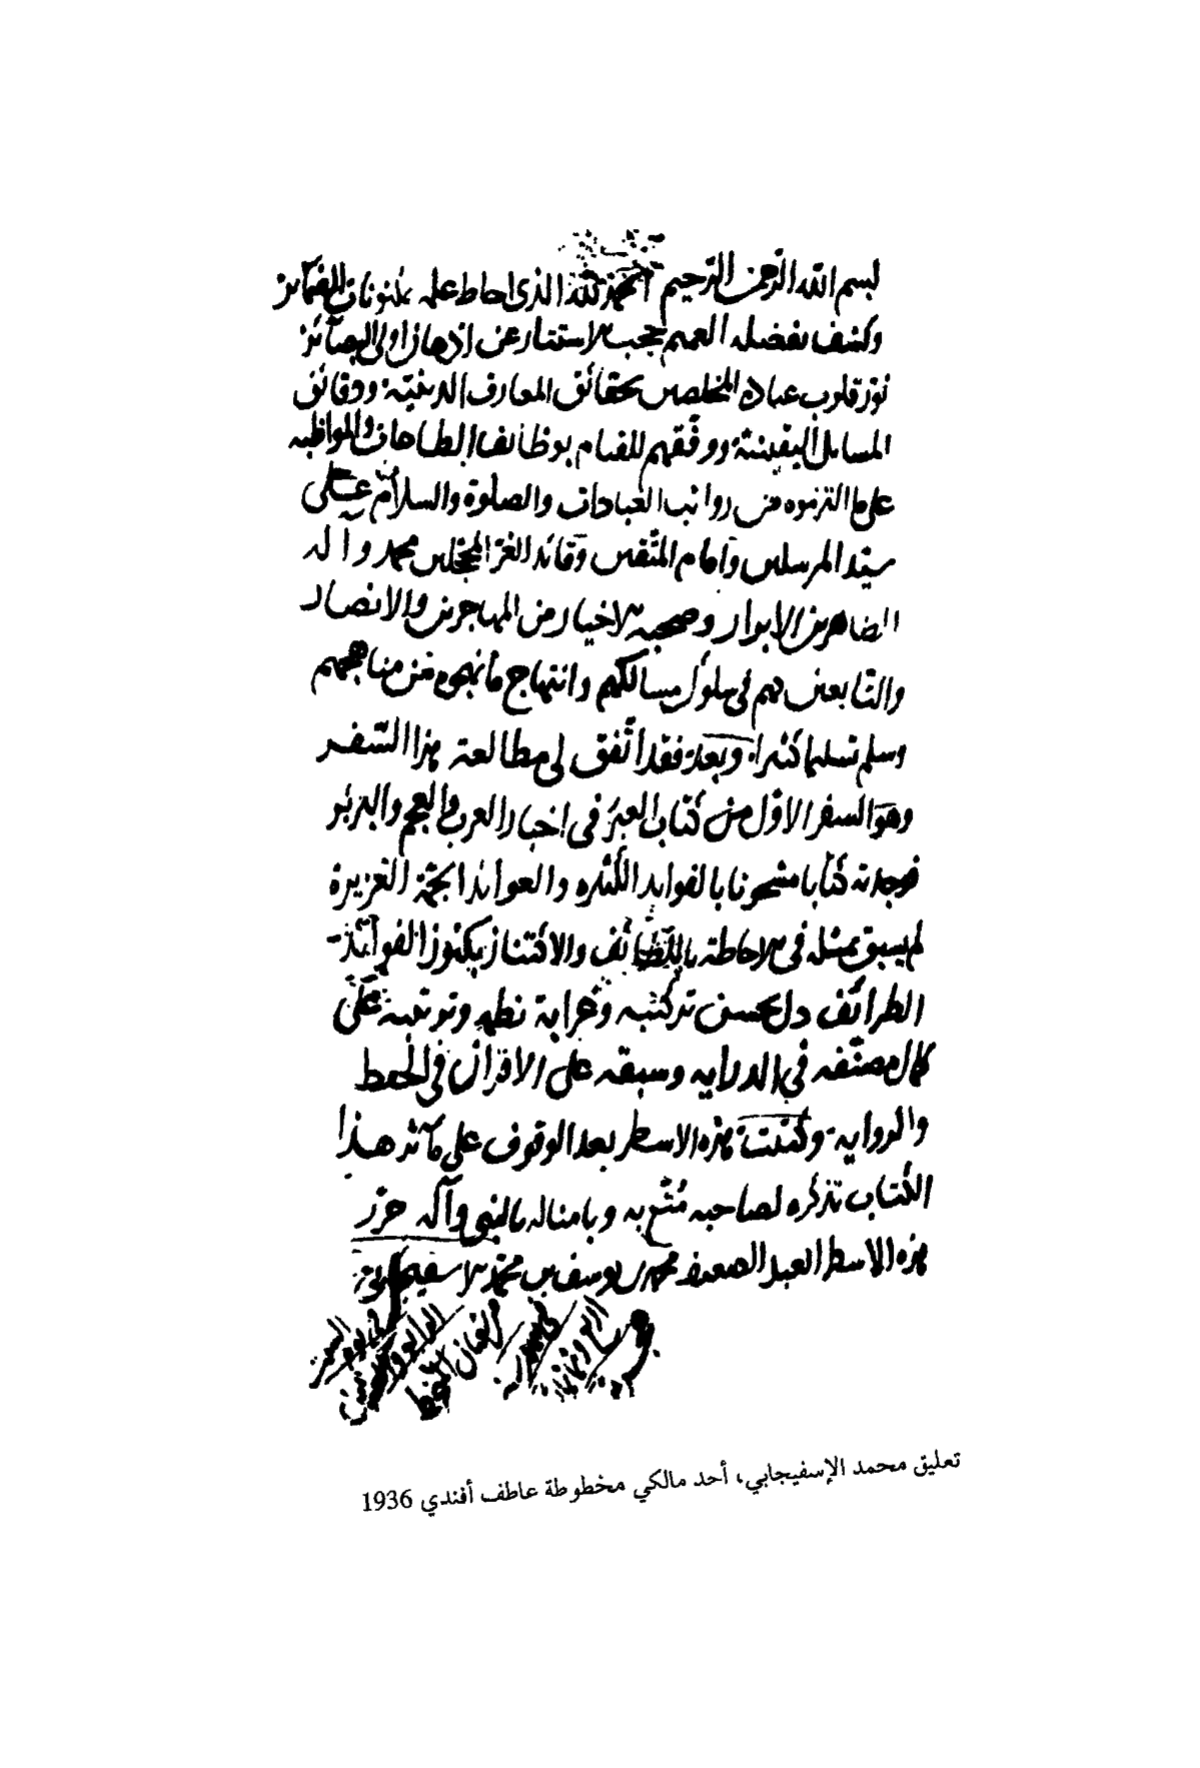 بسم الله الرّحمن الرّحيم الحمد لله الذى احاط علمه بمكنونات الضمآئر
وكشف بفضله العميم حجب الاستتار عن اذهان اولى البصآئر
نوّر قلوب عباده المخلصين بحقائق المعارف الدينيّة ودقائق
المسايل اليقينيّة ووفّقهم للقيام بوظائف الطاعات والمواظبه
على ما التزموه من رواتب العبادات والصلوة والسلام على
سيّد المرسلين وامام المتّقين وقائد الغرّ المحجّلين محمد واله
الطاهرين الابرار وصحبه الاخيار من المهاجرين والانصار
والتّابعين لهم فى سلوك مسالكهم وانتهاج ما نهجوه من مناهجهم
وسلم تسليما كثيرا وبعد فقد اتّفق لى مطالعة هذا السّفر
وهو السفر الاوّل من كتاب العبر فى اخبار العرب والعجم والبربر
فوجدته كتابا مشحونا بالفوايد الكثيره والعوائد الجمّة الغزيرة
لم يسبق بمثله فى الاحاطة باللّطائف والاكتناز بكنوز الفوآئد
الطرائف دل بحسن تركيبه وغرابة نظمه وترتيبه على
كمال مصنّفه فى الدرايه وسبقه على الاقران فى الحفظ
والروايه وكتبت هذه الاسطر بعد الوقوف على مآثر هذا
الكتاب تذكره لصاحبه مُتّع به وبامثاله بالنبى وآله حرّر
هذه الاسطر العبد الضعيف محمد بن يوسف بن محمّد الاسفيجابى
تعليق محمد الإسفيجابي، أحد مالكي مخطوطة عاطف أفندي 1936